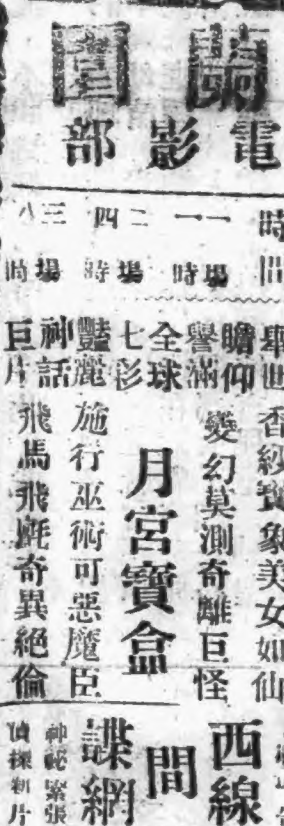 電影部
時間
一場一時
二場四時
三場八時
舉世
瞻仰
譽滿
全球
七彩
豔麗
神話
巨片
香紗寶象美女如仙
變幻莫測奇離巨怪
月宮寶盒
施行巫術可惡魔臣
飛馬飛氈奇異絕倫
西線
間
諜網
神祕緊張
偵探新片